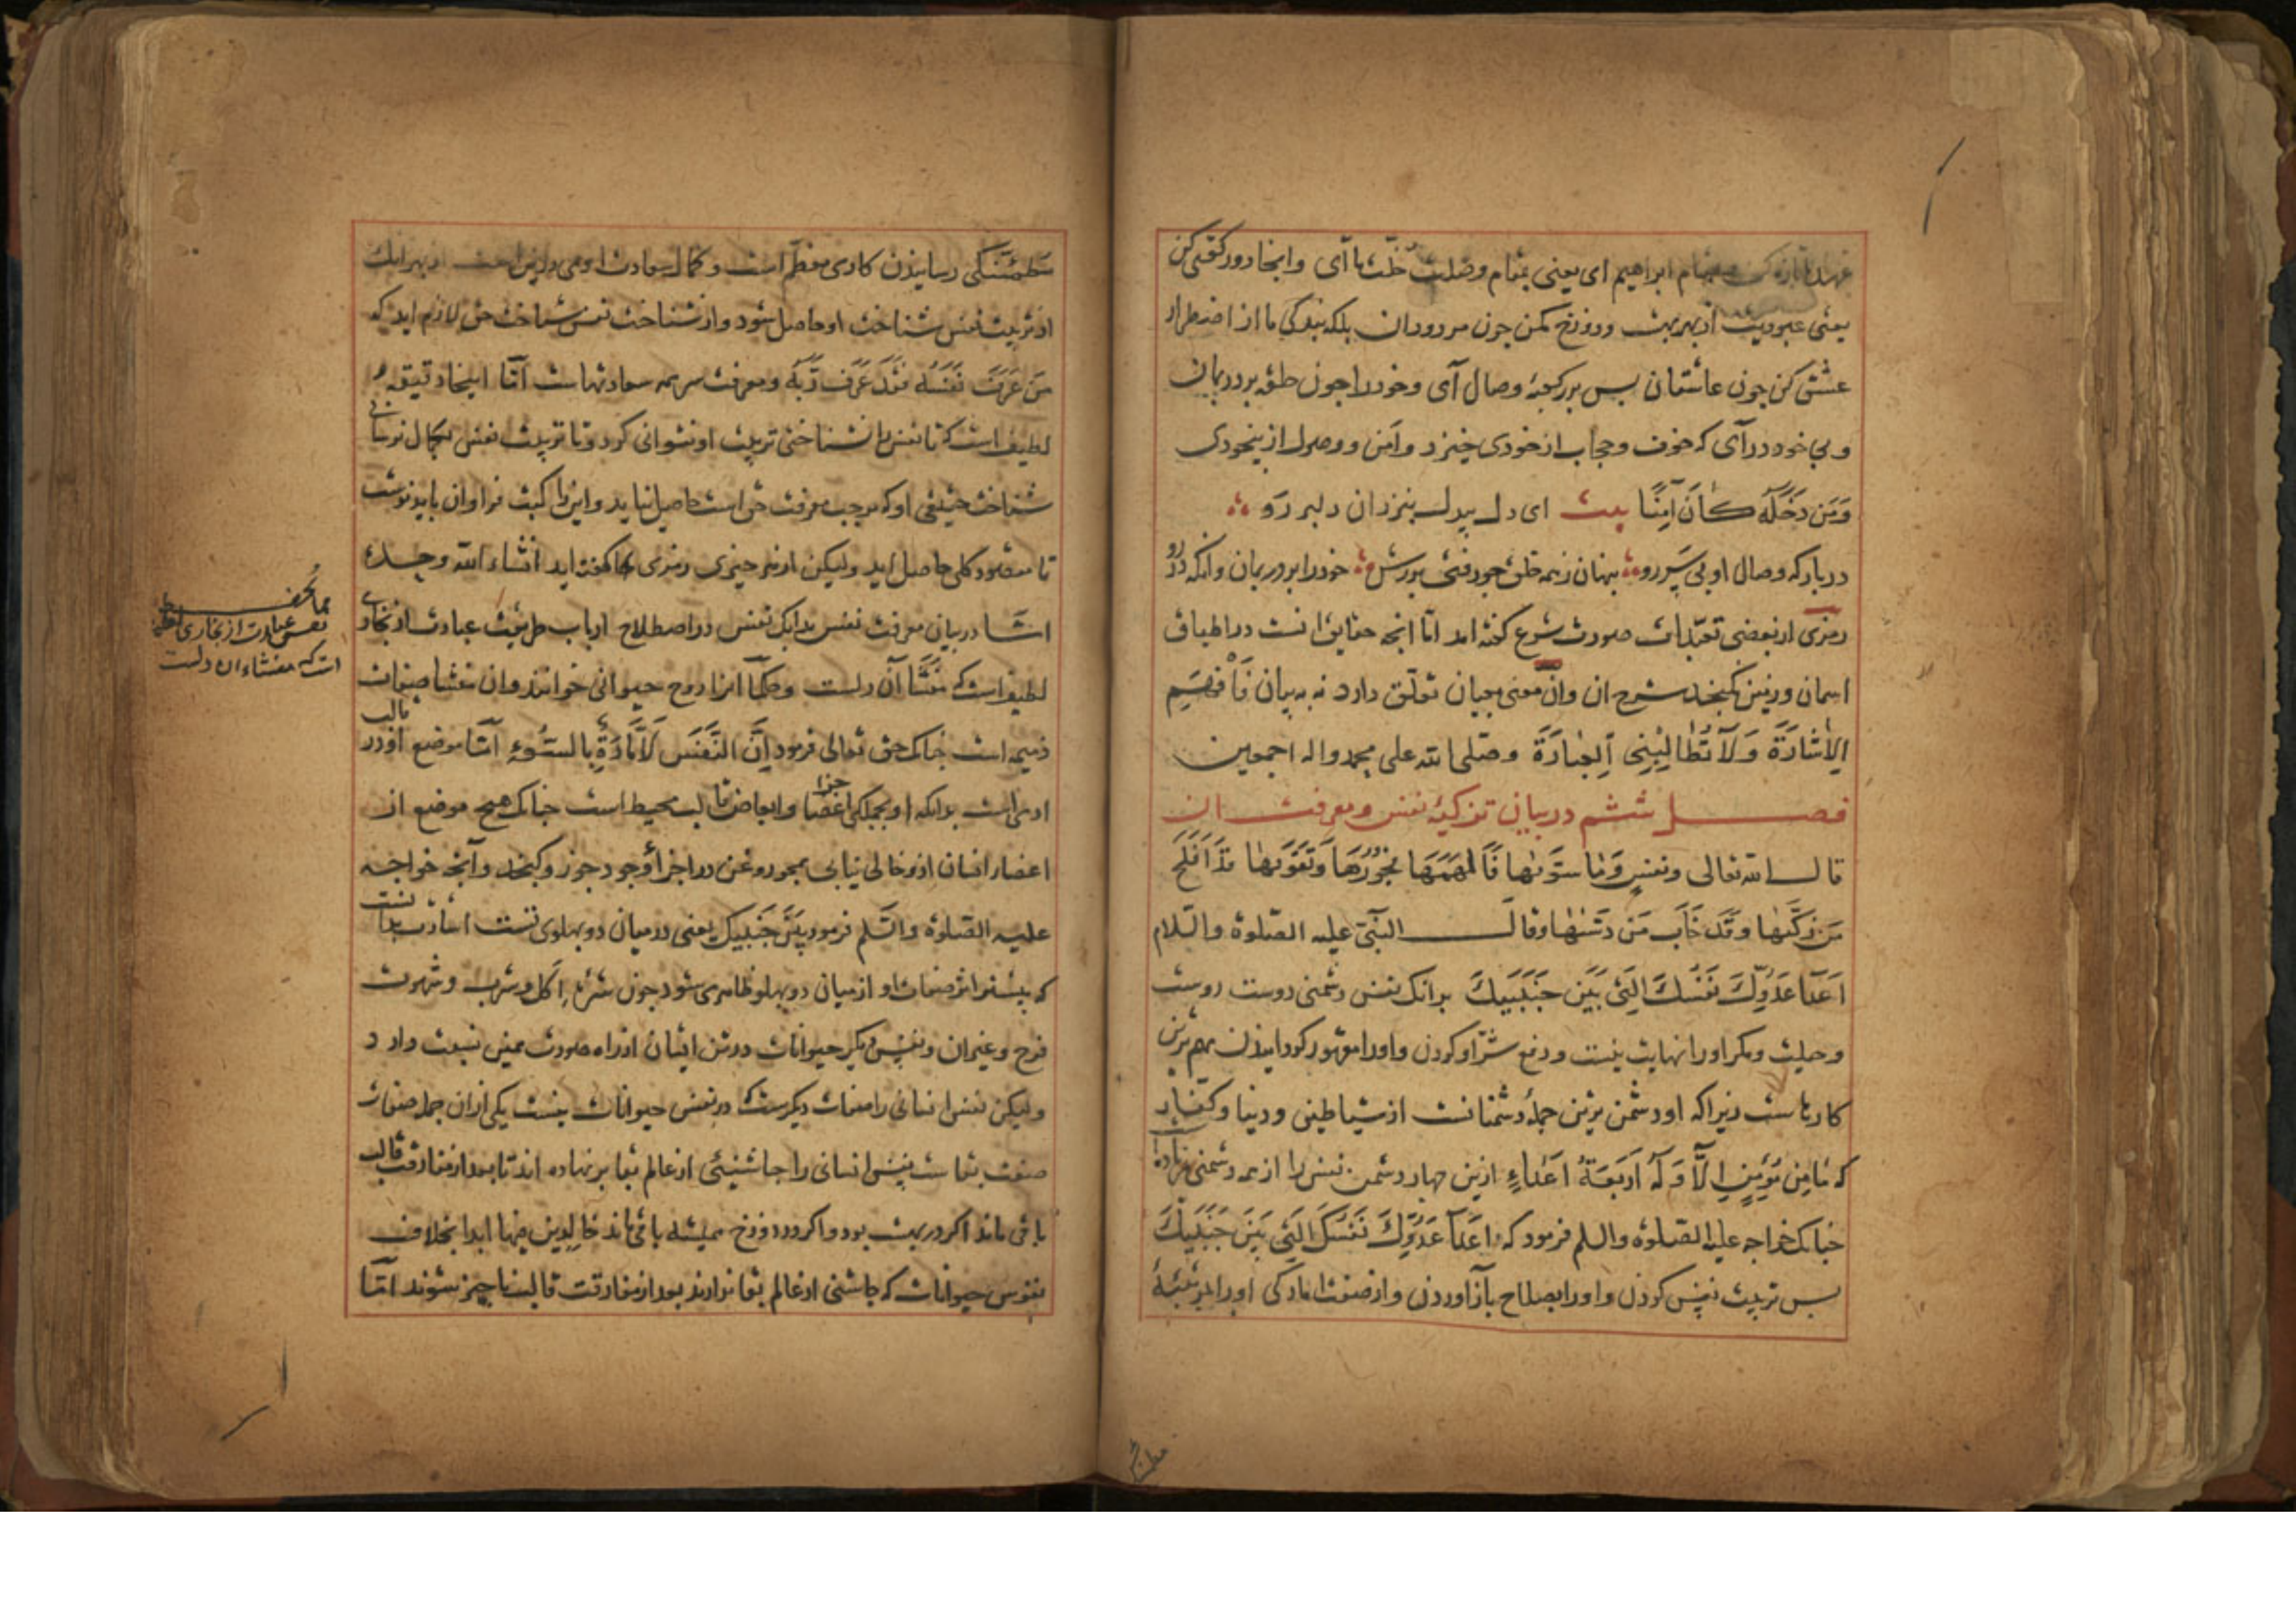 عهدها تازه کن بمقام ابراهیم ای یعنی بمقام وصلت خلّت ما آی وانجا دو رکعتی کن
یعنی عبودیت از بهر بهشت و دوزخ مکن چون مردودان بلکه بندکی ما از اضطرار
عشق کن چون عاشقان بس بر در کعبهٔ وصال آی وخود را چون حلقه بر در بمان
و بی خود در آی که خوف و حجاب از خودی خیزد و امن و وصول از بیخودی
وَمَن دَخَلَهُ كَانَ آمِنًا بیت ای دل بیدل بنزد ان دلبر رو
در بارکه وصال او بی سر رو بنهان ز همه خلق چو رفتی بورش خود را بر در بمان وانکه در رو
رمزی از بعضی تعبّدات صورت شرع کفته امد امّا انجه حقایق انست در اطباق
اسمان و زمین نکنجد شرح ان وان معنی بعیان تعلّق دارد نه به بیان فَافْهَمِ
الاِشَارَةَ وَلَا تُطَالِبْنِی اَلعِبَارَةَ وصلی الله علی محمد واله اجمعین
فصل ششم در بیان تزکیهٔ نفس و معرفت ان
قال الله تعالی ونفسٍ وَمَا سَوّٰیها فَاَلهَمَهَا فُجُورَهَا وَتَقوٰیها قَدْ اَفْلَحَ
مَن زَکّٰیها وقَد خَابَ مَن دَسّٰیها وقال النبّی علیه الصّلوة والسّلام
اَعدَا عَدُوِّکَ نَفسُکَ الَّتِی بَینَ جَنبَیکَ بدانک نفس دشمنی دوست رویست
و حیلت و مکر او را نهایت نیست و دفع شرّ او کردن و او را مقهور کردانیدن مهم ترین
کارهاست زیرا که او دشمن ترین جملهٔ دشمنانست از شیاطینی و دنیا و کفّار
که مَا مِن مُؤمِنٍ اِلَّا وَلَهُ اَربَعَةُ اَعدَاءٍ ازین جهار دشمن نفس را از همه دشمنی زیاده
جنانک خواجه علیه الصّلوة والسلم فرمود که اَعدَا عَدُوِّکَ نَفسُکَ الَّتِی بَینَ جَنبَیکَ
بس تربیت نفس کردن و او را بصلاح باز آوردن و از صفت امارکی او را بمرتبهٔ
مطمئنکی
مطمئنّکی رسانیدن کاری معظّم است و کمال سعادت ادمی درین است از بهر انک
از تربیت نفس شناخت او حاصل شود و از شناخت نفس شناخت حق لازم اید که
مَن عَرَفَ نَفسَهُ فَقَد عَرَفَ رَبَّهُ و معرفت سر همه سعادتهاست امّا اینجا دقیقهٔ
لطیف است که تا نفس را نشناختی تربیت او نتوانی کرد و تا تربیت نفس بکمال نرسانی
شناخت حقیقی او که موجب معرفت حق است حاصل نیاید و این را کتب فراوان باید نوشت
تا مقصود کلی حاصل اید ولیکن از هر جیزی رمزی کفته اید انشاء الله وحده
امّا در بیان معرفت نفس بدانک نفس در اصطلاح ارباب طریقت عبارت از بخاری
لطیف است که منشا آن دلست و حکما انرا روح حیوانی خوانند وان منشا صفات
ذمیمه است جنانک حق تعالی فرمود اِنَّ النَّفسَ لَاَمَّارَةٌ بِالسُّوءِ امّا موضع او در قالب
ادمی است بدانکه او بجملکی اجزا اعضا و ابعاض قالب محیط است جنانک هیج موضع از
اعضاء انسان ازو خالی نیابی همجو روغن در اجزا وجود جوز و کنجد و آنجه خواجه
علیه الصّلوة والسّلم فرمود بَینَ جَنبَیکَ یعنی در میان دو بهلوی تست اشارت بدانست
که بیشتر اثر صفات او از میان دو بهلو ظاهر می شود چون شرهٔ اکل و شرب و شهوت
فرج وغیر ان و نفس دیکر حیوانات در تن ایشان از راه صورت همین نسبت دارد
ولیکن نفس انسانی را صفات دیکرست که در نفس حیوانات نیست یکی ازان جمله صفات
صفت بقاست نفس انسانی را جاشنیئی از عالم بقا بر نهاده اند تا بعد از مفارقت قالب
باقی ماند اکر در بهشت بود و اکر در دوزخ همیشه باقی ماند خالدین فیها ابدا بخلاف
نفوس حیوانات که جاشنی از عالم بقا ندارند بعد از مفارقت قالب ناجیز شوند امّا
نفس عبارت از بخاری لطیف
است که منشاء ان دلست